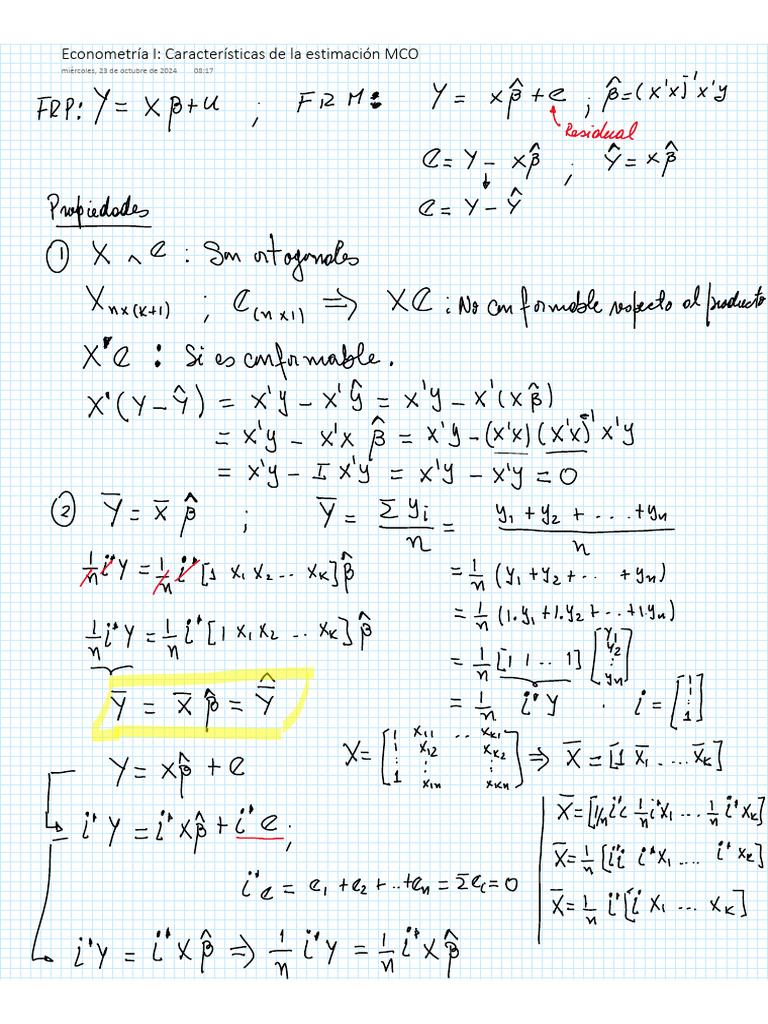 Econometría I: Características de la estimación MCO
miércoles, 23 de octubre de 2024 08:17
FRP: Y = Xβ + u ; FRM: Y = Xβ̂ + e ; β̂ = (X'X)⁻¹X'y
Residual
e = Y - Xβ̂ ; Ŷ = Xβ̂
e = Y - Ŷ
Propiedades
① X ∧ e : Son ortogonales
X_{n×(k+1)} ; e_{(n×1)} ⇒ Xe : No conformable respecto al producto
X'e : Si es conformable.
X'(Y - Ŷ) = X'y - X'Ŷ = X'y - X'(Xβ̂)
= X'y - X'X β̂ = X'y - (X'X)(X'X)⁻¹X'y
= X'y - I X'y = X'y - X'y = 0
② Ȳ = X̄ β̂ ; Ȳ = Σyi / n = (y1 + y2 + ... + yn) / n
1/n i'Y = 1/n i'[1 X1 X2 ... XK]β̂
= 1/n (y1 + y2 + ... + yn)
= 1/n (1.y1 + 1.y2 + ... + 1.yn)
1/n i'Y = 1/n i'[1 X1 X2 ... XK]β̂
= 1/n [1 1 .. 1] [y1 y2 : yn]
Ȳ = X̄ β̂ = Ŷ̄
= 1/n i'Y . i = [1 1 : 1]
X = [1 X11 .. XK1
1 X12 XK2
: : :
1 X1n XKn] ⇒ X̄ = [1 X̄1 ... X̄K]
Y = Xβ̂ + e
i'Y = i'Xβ̂ + i'e ;
X̄ = [1/n i'i 1/n i'X1 ... 1/n i'XK]
X̄ = 1/n [i'i i'X1 ... i'XK]
X̄ = 1/n i'[i X1 ... XK]
i'e = e1 + e2 + ..+ en = Σei = 0
i'Y = i'Xβ̂ ⇒ 1/n i'Y = 1/n i'Xβ̂